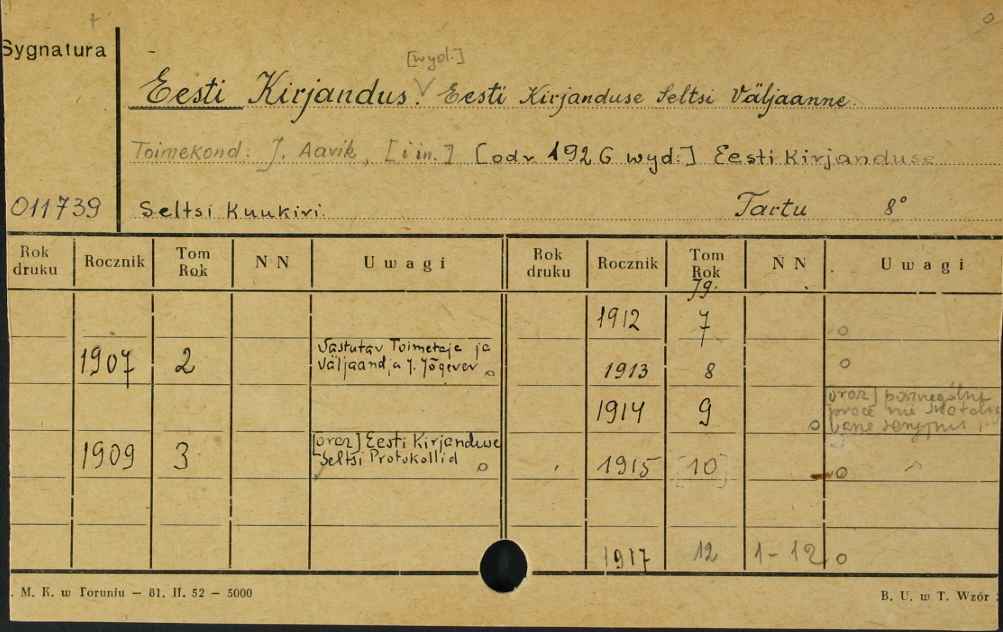 Sygnatura
[wyd.]
Eesti Kirjandus. Eesti Kirjanduse Seltsi Väljaanne.
Toimekond: J. Aavik, [i in.] [odr 1926 wyd:] Eesti Kirjanduse
011739 Seltsi Kuukiri. Tartu 8°
Rok druku Rocznik Tom Rok N N Uwagi Rok druku Rocznik Tom Rok N N Uwagi
Jg.
1912 7 o
1907 2 Vastutav Toimetaja ja
Väljaandja J. Jõgever o 1913 8 o
1914 9 o [oraz]
prace nie
1909 3 [oraz] Eesti Kirjanduse
Seltsi Protokollid o 1915 [10] o
1917 12 1-12 o
. M. K. w Toruniu — 81. II. 52 — 5000 B. U. w T. Wzór